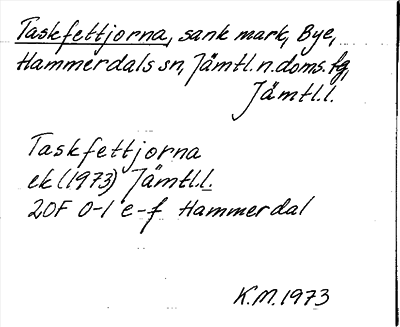 Taskfettjorna, sank mark, Bye,
Hammerdals sn, Jämtl. n. doms. fg,
Jämtl. l.
Taskfettjorna
ek (1973) Jämtl. l.
20F 0-1 e-f Hammerdal
K.M. 1973